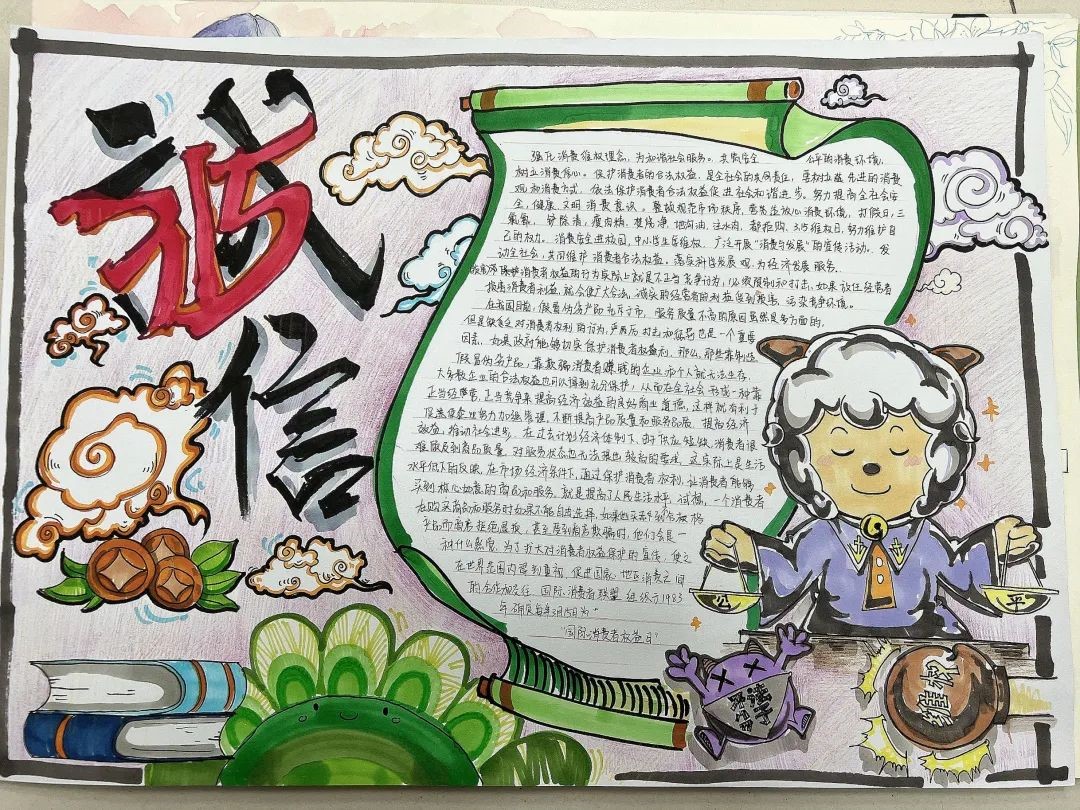 诚信
315
强化消费维权理念,为和谐社会服务。共购安全 公平的消费环境,
树立消费信心。保护消费者的合法权益,是全社会的共同责任,要树立起先进的消费
观和消费方式,依法保护消费者合法权益促进社会和谐进步。努力提高全社会安
全,健康,文明消费意识。整顿规范市场秩序,营造放心消费环境,打假日,三
氯氰,瘦肉精,地沟油,注水肉,都拒购,3.15维权日,努力维护自
己的权力。消费安全进校园,中小学生要维权,广泛开展"消费与发展"的宣传活动。发
动全社会,共同维护消费者合法权益。落实科学发展观,为经济发展服务。
消费者权益的行为实际上就是不正当竞争行为,必须限制和打击,如果放任经营者
损害消费者利益,就会使广大合法,诚实的经营者的利益受到损害,污染竞争环境。
在我国目前,假冒伪劣产品充斥于市,服务质量不高的原因虽然是多方面的,
但是缺乏对消费者权利的行为,严厉打击和惩罚也是一个重要
因素,如果政府能够切实保护消费者权益利,那么,那些靠制造
假冒伪劣产品,靠欺骗消费者赚钱的企业和个人就无法生存,
大多数企业的合法权益也可以得到充分保护,从而在全社会形成一种靠
正当经营,正当竞争来提高经济效益的良好商业道德,这样就有利于
促进使企业努力加强管理,不断提高产品质量和服务品质,提高经济
效益,推动社会进步。在过去计划经济体制下,由于供应短缺,消费者很
难顾及到商品质量,对服务状态也无法提出较高的要求,这实际上是生活
水平低下的反映。在市场经济条件下,通过保护消费者权利,让消费者能够
买到称心如意的商品和服务,就是提高了人民生活水平,试想,一个消费者
在购买商品和服务时如果不能自由选择,如果他买不到合数格
平后而商者拒绝退换,甚至受到商店欺骗时,他们会是一
种什么感觉,为了扩大对消费者权益保护的宣传,使之
在世界范围内得到重视,促进国家,地区消费之间
的合作和交往,国际消费者联盟组织于1983
年确定每年3月15日为"
"国际消费者权益日"
公
平
维权